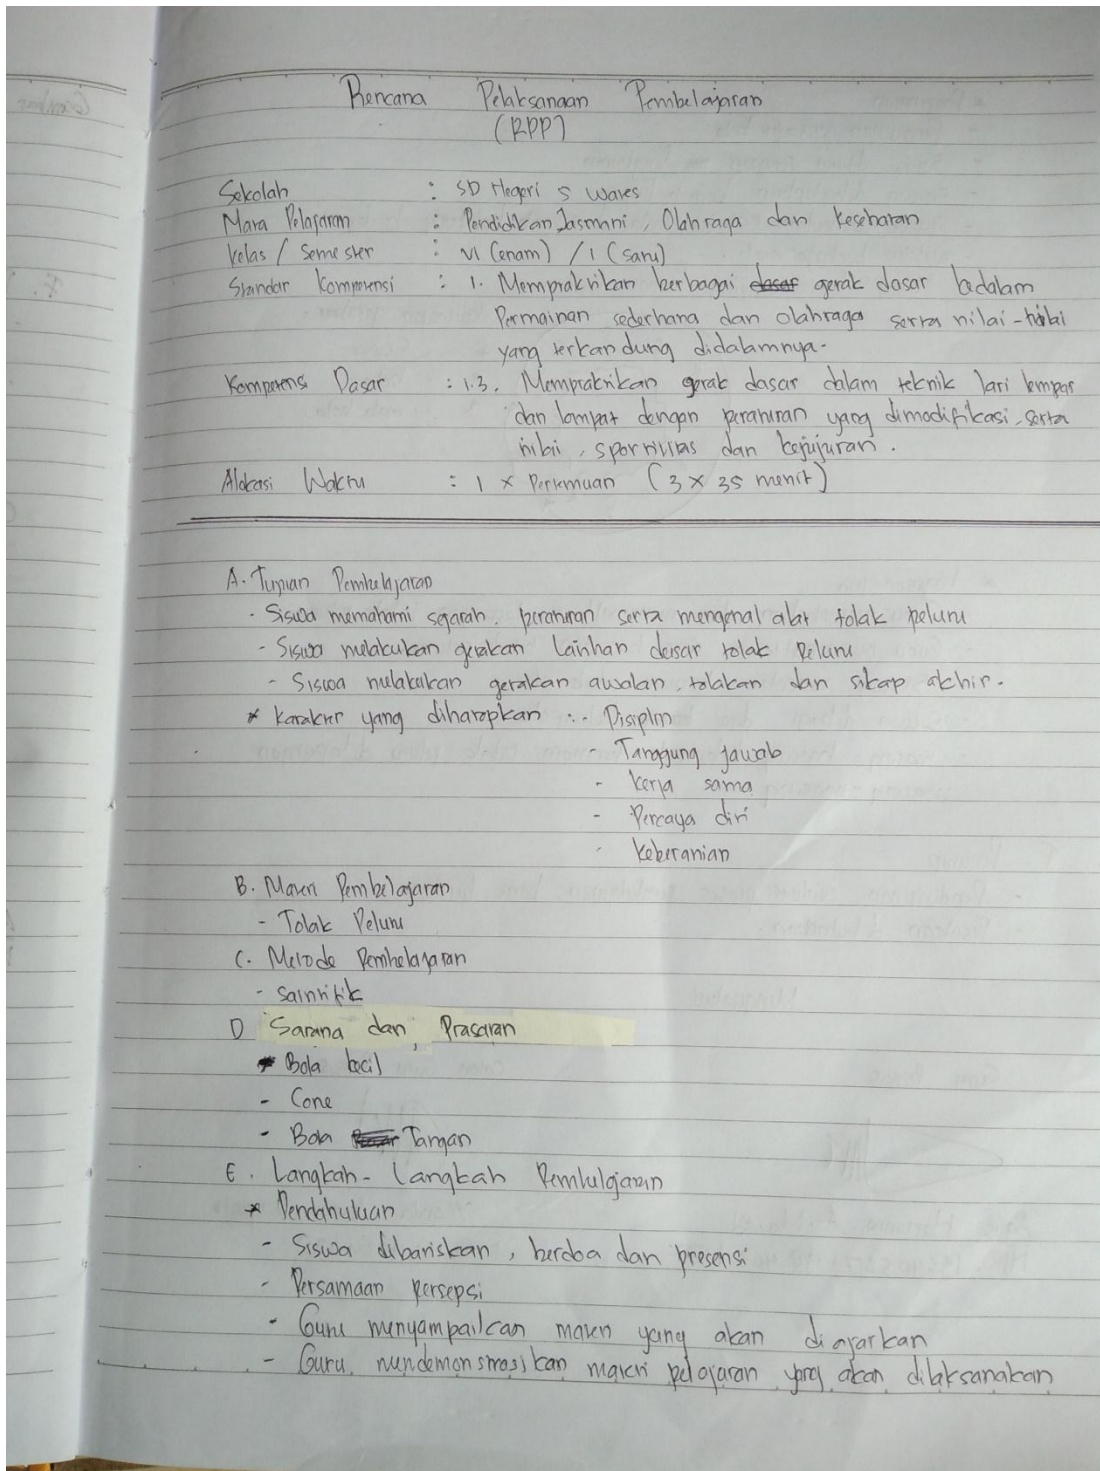 Rencana Pelaksanaan Pembelajaran
(RPP)
Sekolah : SD Negeri 5 Wates
Mata Pelajaran : Pendidikan Jasmani, Olahraga dan Kesehatan
Kelas / Semester : VI (enam) / 1 (satu)
Standar Kompetensi : 1. Mempraktikan berbagai dasar gerak dasar kedalam
Permainan sederhana dan olahraga serta nilai-nilai
yang terkandung didalamnya.
Kompetensi Dasar : 1.3. Mempraktikan gerak dasar dalam teknik lari lempar
dan lompat dengan peraturan yang dimodifikasi, serta
nilai, sportivitas dan kejujuran.
Alokasi Waktu : 1 x Pertemuan (3 x 35 menit)
A. Tujuan Pembelajaran
- Siswa memahami sejarah, peraturan serta mengenal alat tolak peluru
- Siswa melakukan gerakan latihan dasar tolak Peluru
- Siswa melakukan gerakan awalan, tolakan dan sikap akhir.
* Karakter yang diharapkan : - Disiplin
- Tanggung jawab
- Kerja sama
- Percaya diri
- Keberanian
B. Materi Pembelajaran
- Tolak Peluru
C. Metode Pembelajaran
- Saintifik
D Sarana dan Prasaran
- Bola kecil
- Cone
- Bola Tangan
E. Langkah-Langkah Pembelajaran
* Pendahuluan
- Siswa dibariskan, berdoa dan presensi
- Persamaan persepsi
- Guru menyampaikan materi yang akan diajarkan
- Guru mendemonstrasikan materi pelajaran yang akan dilaksanakan